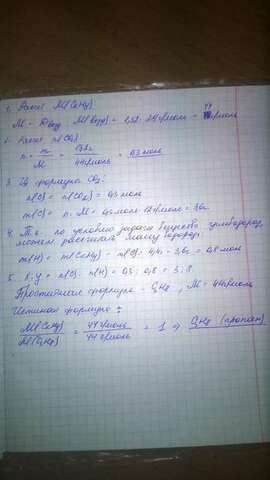 1. Расчет M(CxHy)
M = Dвозд · M(возд) = 1,52 · 29 г/моль = 44 г/моль
2. Расчет n(CO₂)
n = m / M = 13,2г / 44 г/моль = 0,3 моль
3. Из формулы CO₂:
n(C) = n(CO₂) = 0,3 моль
m(C) = n · M = 0,3 моль · 12 г/моль = 3,6г
4. Т.к. по условию задачи углеводород,
можем рассчитать массу водорода:
m(H) = m(CxHy) - m(C) = 4,4 - 3,6 = 0,8 моль
5. x:y = n(C) : n(H) = 0,3 : 0,8 = 3:8
Простейшая формула - C₃H₈, M = 44 г/моль
Истинная формула:
M(CxHy) / M(C₃H₈) = 44 г/моль / 44 г/моль = 1 ⇒ C₃H₈ (пропан)